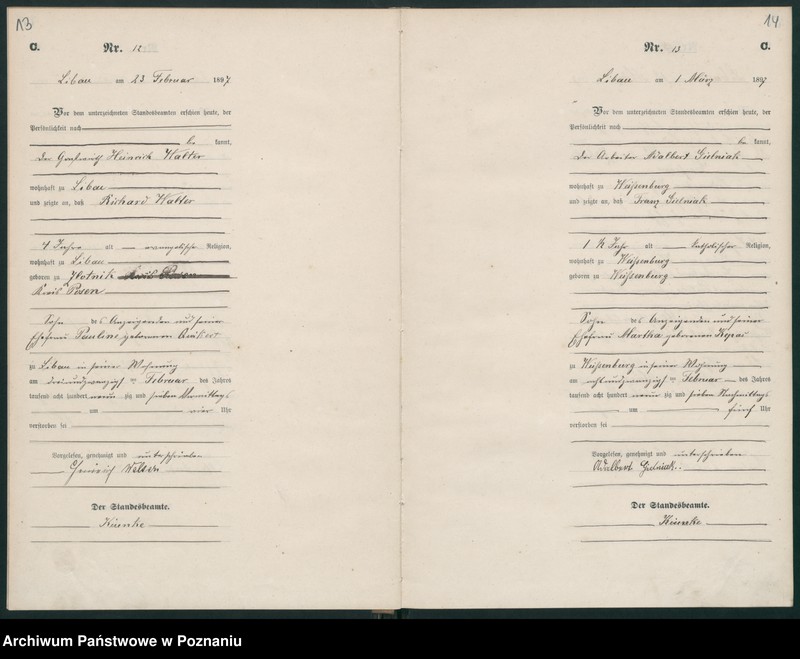 13
C.
Nr. 12
Libau am 23 Februar 1897
Vor dem unterzeichneten Standesbeamten erschien heute, der
Persönlichkeit nach
be kannt,
der Heinrich Walter
wohnhaft zu Libau
und zeigte an, daß Richard Walter
4 Jahre alt evangelische Religion,
wohnhaft zu Libau
geboren zu Zlotnik
Kreis Posen
Sohn des Anzeigenden und seiner
Ehefrau Pauline geborenen
zu Libau in seiner Wohnung
am dreiundzwanzigsten Februar des Jahres
tausend acht hundert neun zig und sieben Vormittags
um vier Uhr
verstorben sei
Vorgelesen, genehmigt und unterschrieben
Heinrich
Der Standesbeamte.
14
Nr. 13
C.
Libau am 1 März 1897
Vor dem unterzeichneten Standesbeamten erschien heute, der
Persönlichkeit nach
be kannt,
der Arbeiter Adalbert Gulniak
wohnhaft zu Weißenburg
und zeigte an, daß Franz Gulniak
1 ½ Jahr alt katholischer Religion,
wohnhaft zu Weißenburg
geboren zu Weißenburg
Sohn des Anzeigenden und seiner
Ehefrau Martha geborenen
zu Weißenburg in seiner Wohnung
am achtundzwanzigsten Februar des Jahres
tausend acht hundert neun zig und sieben Nachmittags
um fünf Uhr
verstorben sei
Vorgelesen, genehmigt und unterschrieben
Adalbert Gulniak.
Der Standesbeamte.
Archiwum Państwowe w Poznaniu